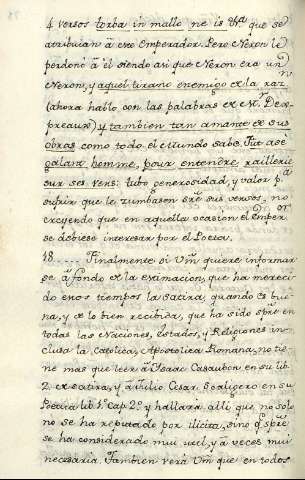 4 versos torba in mallo ne is &ª que se
atribuian â ese Emperador. Pero Neron le
perdonò â êl siendo asi que Neron era un
Neron, y aquel tirano enemigo de la raz.ⁿ
(ahora hablo con las palabras de M.ʳ Des-
preaux) y tambien tan amante de sus
obras como todo el Mundo sabe. Fut asè
galant homme, pour entendre raillerie
sur ses vers: tubo generosidad, y valor pª
sufrir que le zumbasen sre sus versos, no
creyendo que en aquella ocasion el Emper.ᵒʳ
se debiese interesar por el Poeta.
48..... Finalmente si Vm quiere informar
se â fondo de la estimacion, que ha mereci-
do en os tiempos la satira, quando es bue-
na, y de lo bien recibida, que ha sido spre en
todas las Naciones, Estados, y Religiones in-
clusa la Catolica, Apostolica Romana, no tie-
ne mas que leer â Isaac Casaubon en su lib.
2. de satira, y â Julio Cesar Scaligero en su
Poetica lib. 1º Cap. 2º, y hallarà alli que no solo
no se ha reputado por ilicita, sino q. spre
se ha considerado mui util, y â veces mui
necesaria. Tambien verà Vm que en todos